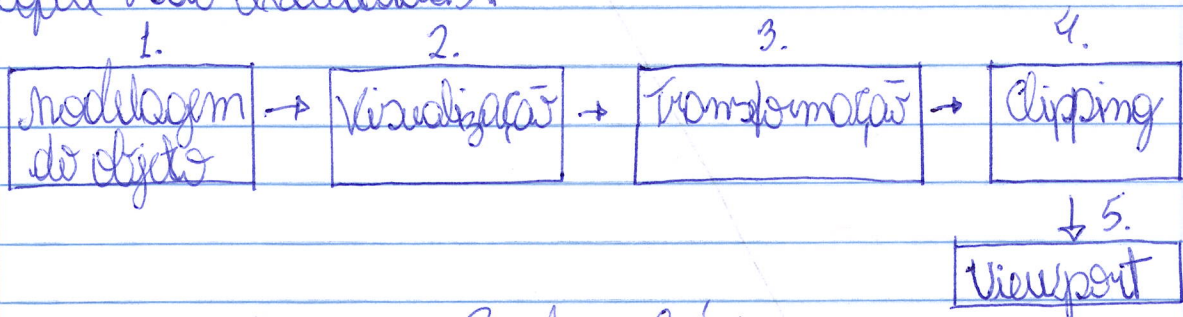 1.
2.
3.
4.
modelagem
do objeto
→ Visualização → Transformação → Clipping
↓ 5.
Viewport